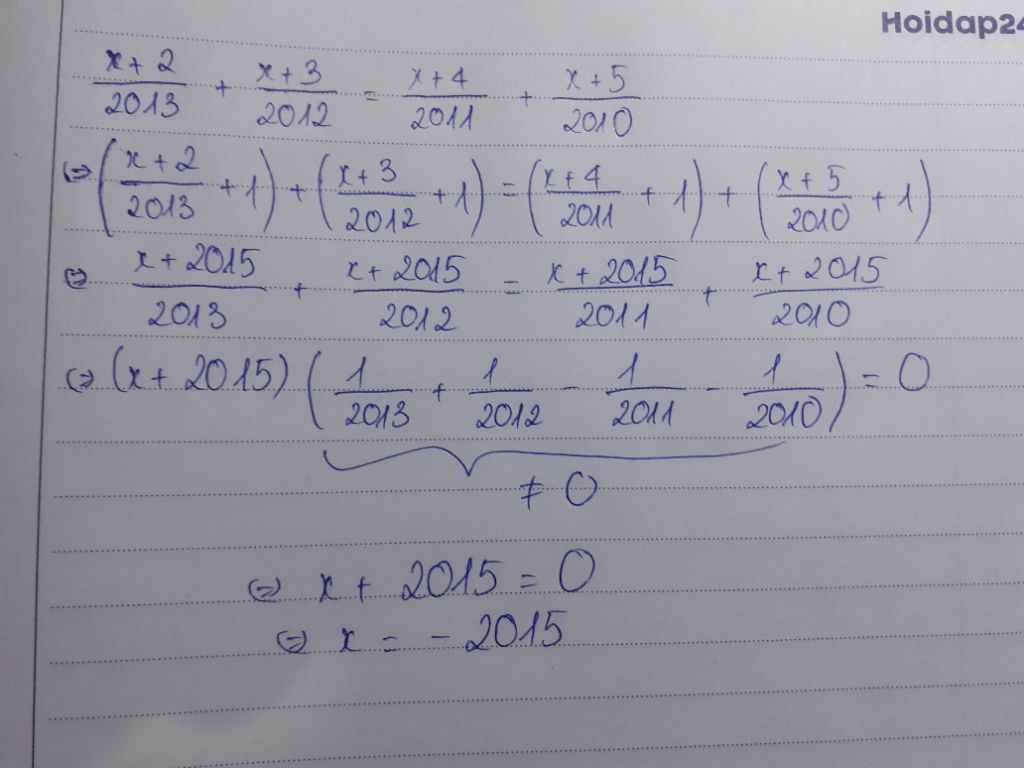 Hoidap24
x + 2/2013 + x + 3/2012 = x + 4/2011 + x + 5/2010
⇔ (x + 2/2013 + 1) + (x + 3/2012 + 1) = (x + 4/2011 + 1) + (x + 5/2010 + 1)
⇔ x + 2015/2013 + x + 2015/2012 = x + 2015/2011 + x + 2015/2010
⇔ (x + 2015) (1/2013 + 1/2012 - 1/2011 - 1/2010) = 0
≠ 0
⇔ x + 2015 = 0
⇔ x = - 2015